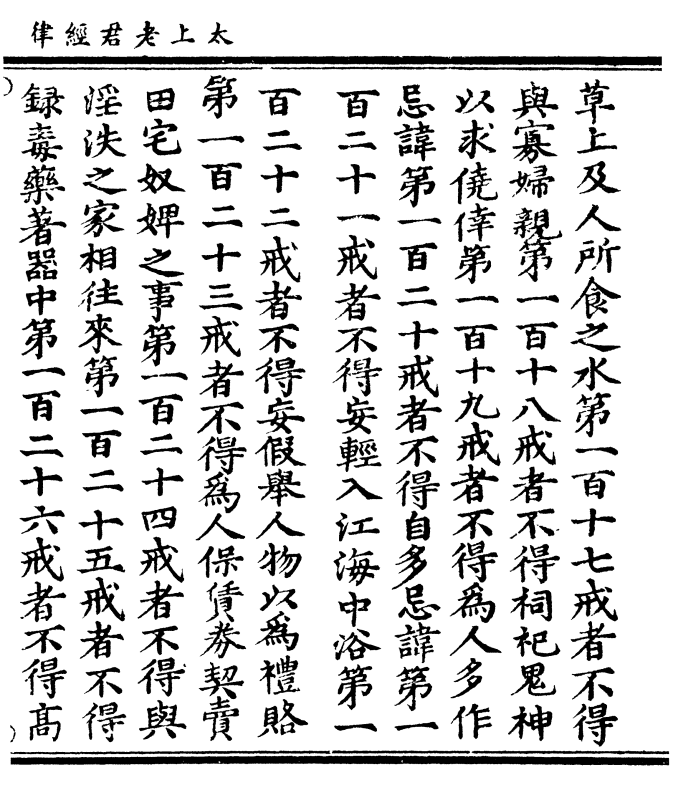 太上老君經律
草上及人所食之水第一百十七戒者不得
與寡婦親第一百十八戒者不得祠祀鬼神
以求僥倖第一百十九戒者不得為人多作
忌諱第一百二十戒者不得自多忌諱第一
百二十一戒者不得妄輕入江海中浴第一
百二十二戒者不得妄假舉人物以為禮賂
第一百二十三戒者不得為人保賃券契賣
田宅奴婢之事第一百二十四戒者不得與
淫泆之家相往來第一百二十五戒者不得
録毒藥著器中第一百二十六戒者不得髙